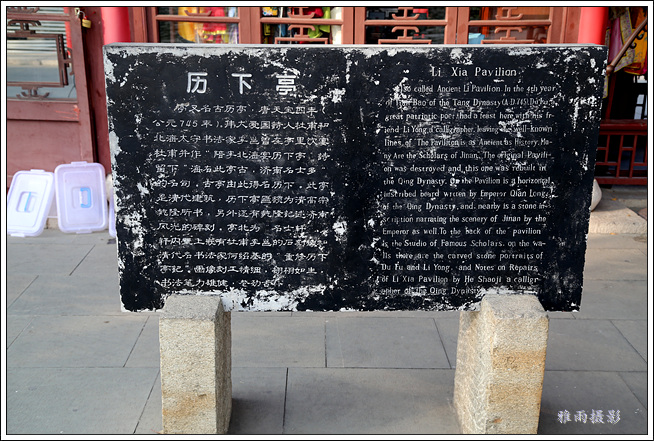 历下亭
原又名古历亭，唐天宝四年
公元745年），伟大爱国诗人杜甫和
北海太守书法家李邕曾在亭里饮宴
杜甫并作"陪李北海宴历下亭，诗
留下"海右此亭古，济南名士多"
的名句，古亭由此得名历下，此亭
是清代建筑，历下亭匾额为清高宗
乾隆所书，另外还有乾隆记述济南
风光的碑刻，亭北为 名士轩
轩内壁上嵌有杜甫李邕的石刻像和
清代名书法家何绍基的 重修历下
亭记。画像刻工精细，栩栩如生
书法笔力雄健，苍劲
Li Xia Pavilion
also called Ancient Li Pavilion. In the 4th year
of Tian Bao of the Tang Dynasty(A.D.745)Du Fu,
great patriotic poet had a feast here with his
friend Li Yong a calligrapher, leaving the well-known
lines of The Pavilion is as Ancient as History, Ma-
ny Are the Scholars of Jinan. The original Pavili-
on was destroyed and this one was rebuilt in
the Qing Dynasty. On the Pavilion is a horizontal
inscribed board written by Emperor Qian Long
of the Qing Dynasty, and nearby is a stone in-
scription narrating the scenery of Jinan by the
Emperor as well. To the back of the "pavilion"
is the Studio of Famous Scholars. on the wa-
lls there are the carved stone portraits of
Du Fu and Li Yong, and Notes on Repairs
of Li Xia Pavilion by He Shaoji a callig-
pher of the Qing Dynasty
雅雨摄影